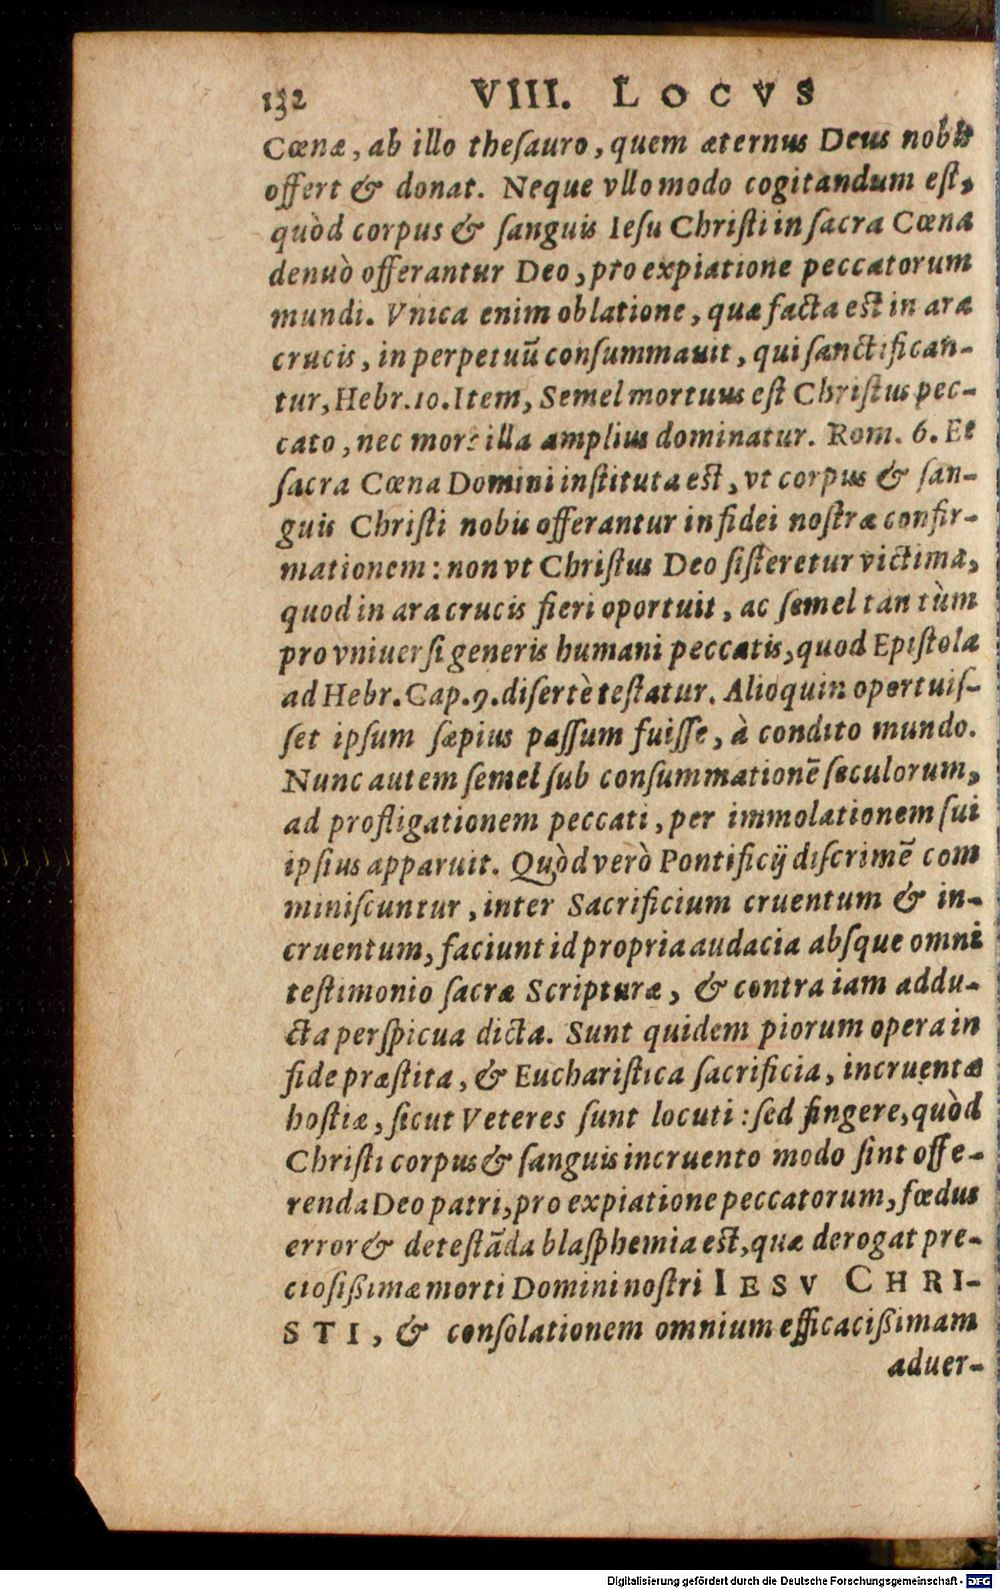 132 VIII. LOCVS
Cœnæ, ab illo theſauro, quem æternus Deus nobis
offert & donat. Neque vllo modo cogitandum eſt,
quòd corpus & ſanguis Ieſu Chriſti in ſacra Cœna
denuò offerantur Deo, pro expiatione peccatorum
mundi. Vnica enim oblatione, quæ facta eſt in ara
crucis, in perpetuũ conſummauit, qui ſanctifican-
tur, Hebr. 10. Item, Semel mortuus eſt Chriſtus pec-
cato, nec mors illa amplius dominatur. Rom. 6. Et
ſacra Cœna Domini inſtituta eſt, vt corpus & ſan-
guis Chriſti nobis offerantur in fidei noſtræ confir-
mationem: non vt Chriſtus Deo ſiſteretur victima,
quod in ara crucis fieri oportuit, ac ſemel tantùm
pro vniuerſi generis humani peccatis, quod Epiſtola
ad Hebr. Cap. 9. diſertè teſtatur. Alioquin oportuiſ-
ſet ipſum ſæpius paſſum fuiſſe, à condito mundo.
Nunc autem ſemel ſub conſummationẽ ſeculorum,
ad profligationem peccati, per immolationem ſui
ipſius apparuit. Quòd verò Pontificij diſcrimẽ com
miniſcuntur, inter Sacrificium cruentum & in-
cruentum, faciunt id propria audacia abſque omni
teſtimonio ſacræ Scripturæ, & contra iam addu-
cta perſpicua dicta. Sunt quidem piorum opera in
fide præſtita, & Euchariſtica ſacrificia, incruentæ
hoſtiæ, ſicut Veteres ſunt locuti: ſed fingere, quòd
Chriſti corpus & ſanguis incruento modo ſint offe-
renda Deo patri, pro expiatione peccatorum, fœdus
error & deteſtãda blaſphemia eſt, quæ derogat pre-
cioſißimæ morti Domini noſtri IESV CHRI-
STI, & conſolationem omnium efficacißimam
aduer-
Digitalisierung gefördert durch die Deutsche Forschungsgemeinschaft - DFG